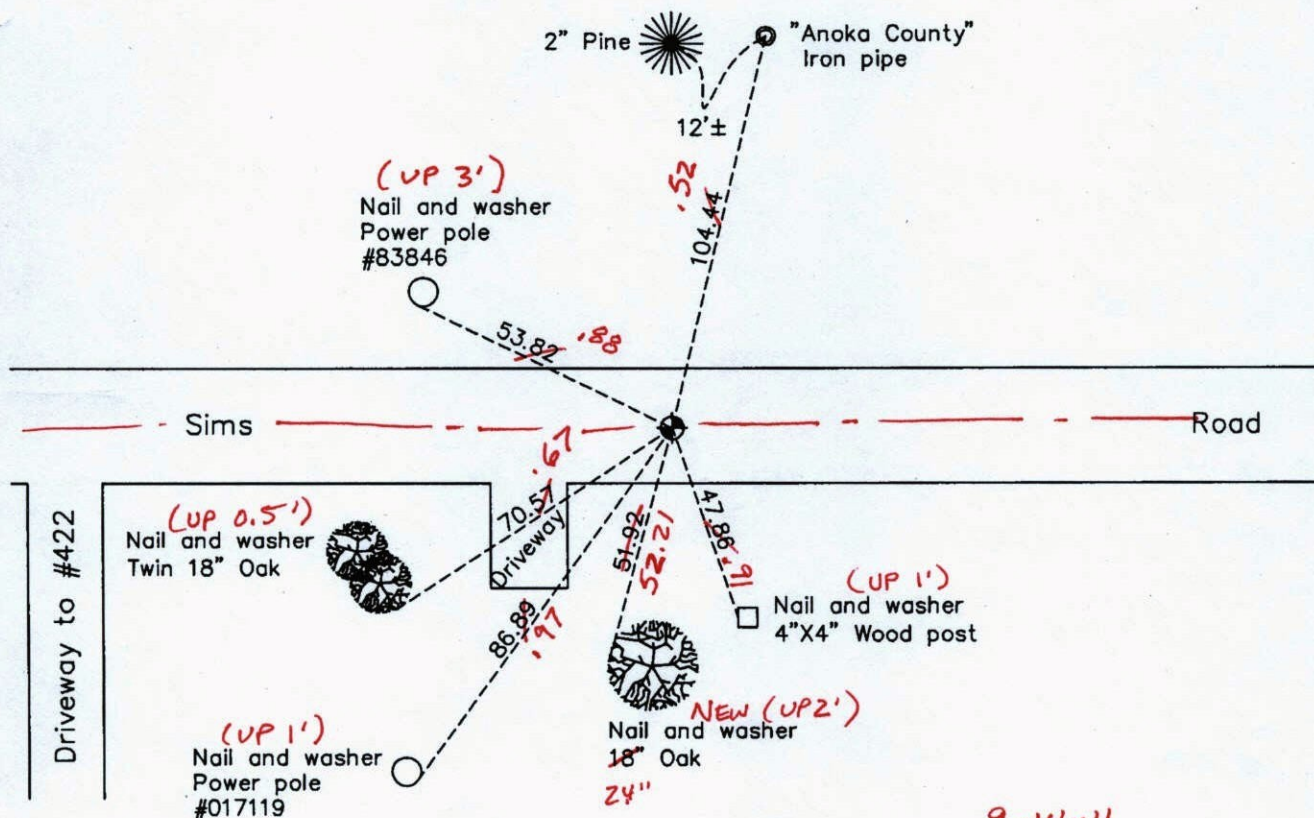 2" Pine
"Anoka County"
Iron pipe
12'±
.52
104.44
(UP 3')
Nail and washer
Power pole
#83846
53.82 .88
Sims
Road
.67
70.57
Driveway
(UP 0.5')
Nail and washer
Twin 18" Oak
Driveway to #422
86.89
.97
51.92
52.21
47.86
.91
(UP 1')
Nail and washer
4"X4" Wood post
NEW (UP 2')
Nail and washer
18" Oak
24"
(UP 1')
Nail and washer
Power pole
#017119